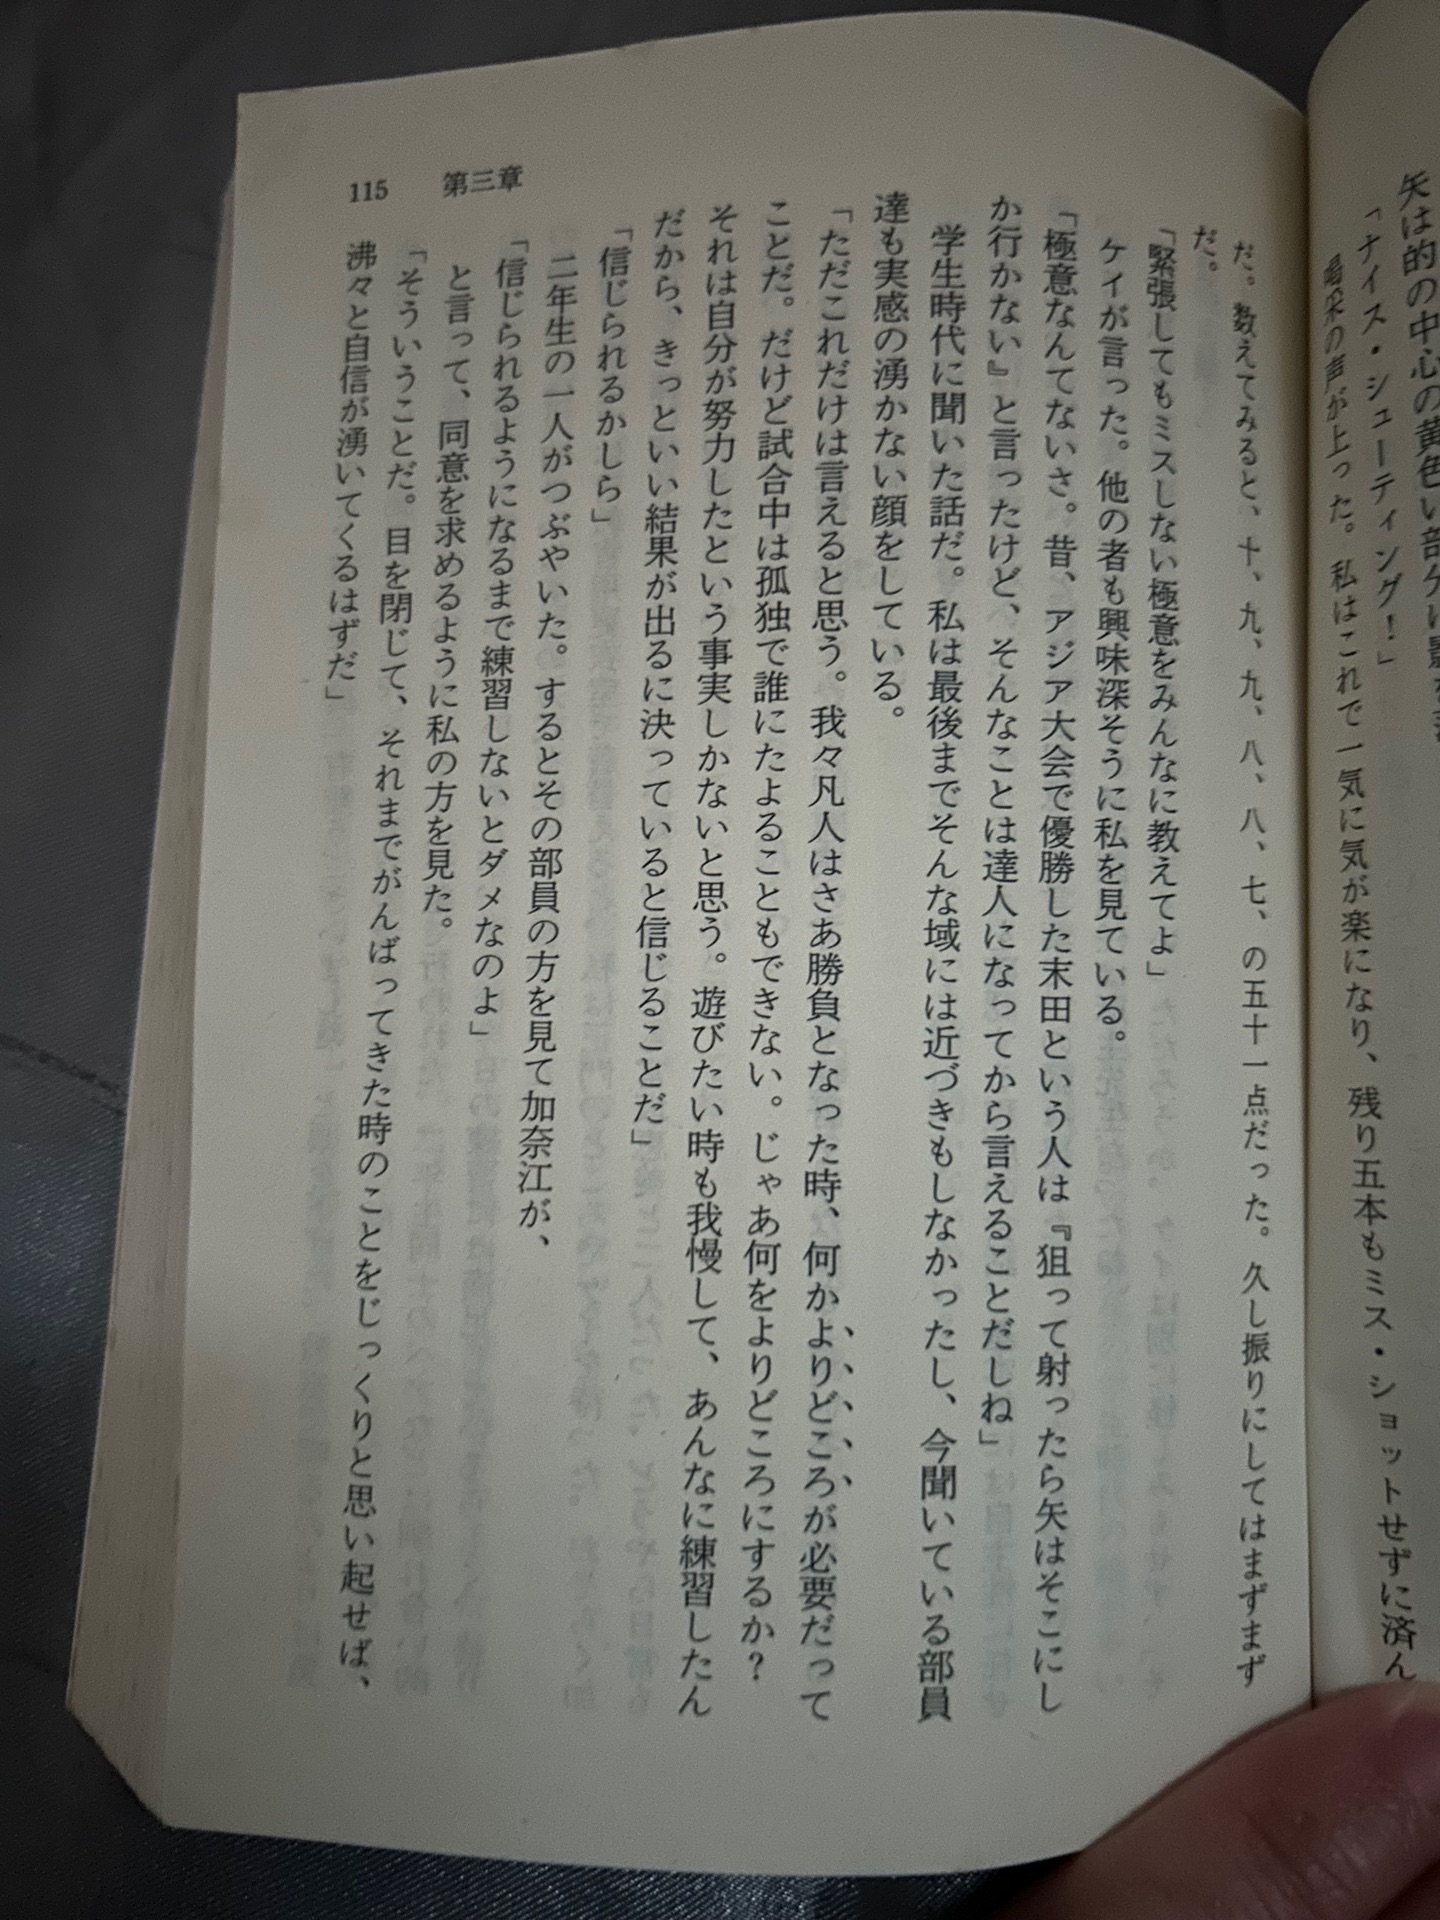 矢は的の中心の黄色い部分に
「ナイス・シューティング！」
喝采の声が上った。私はこれで一気に気が楽になり、残り五本もミス・ショットせずに済ん
だ。数えてみると、十、九、九、八、八、七、の五十一点だった。久し振りにしてはまずまず
だ。
「緊張してもミスしない極意をみんなに教えてよ」
ケイが言った。他の者も興味深そうに私を見ている。
「極意なんてないさ。昔、アジア大会で優勝した末田という人は『狙って射ったら矢はそこにし
か行かない』と言ったけど、そんなことは達人になってから言えることだしね」
学生時代に聞いた話だ。私は最後までそんな域には近づきもしなかったし、今聞いている部員
達も実感の湧かない顔をしている。
「ただこれだけは言えると思う。我々凡人はさあ勝負となった時、何かよりどころが必要だって
ことだ。だけど試合中は孤独で誰にたよることもできない。じゃあ何をよりどころにするか？
それは自分が努力したという事実しかないと思う。遊びたい時も我慢して、あんなに練習したん
だから、きっといい結果が出るに決っていると信じることだ」
「信じられるかしら」
二年生の一人がつぶやいた。するとその部員の方を見て加奈江が、
「信じられるようになるまで練習しないとダメなのよ」
と言って、同意を求めるように私の方を見た。
「そういうことだ。目を閉じて、それまでがんばってきた時のことをじっくりと思い起せば、
沸々と自信が湧いてくるはずだ」
115 第三章